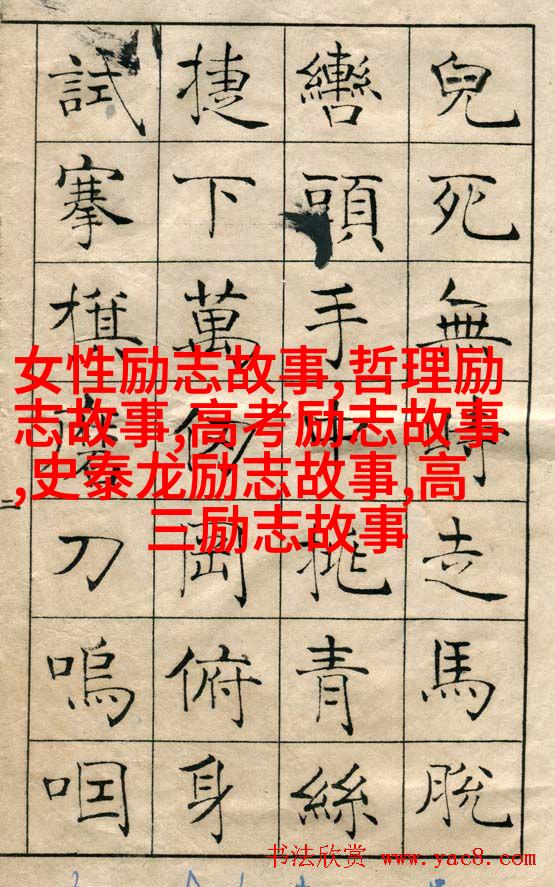 兒死無時走馬脫
轡頭手中挑青絲
捷下萬仞岡俯身
試搴旗刀嗚咽
女性励志故事,哲理励
志故事,高考励志故事
,史泰龙励志故事,高
三励志故事
书法欣赏 www.yac8.com